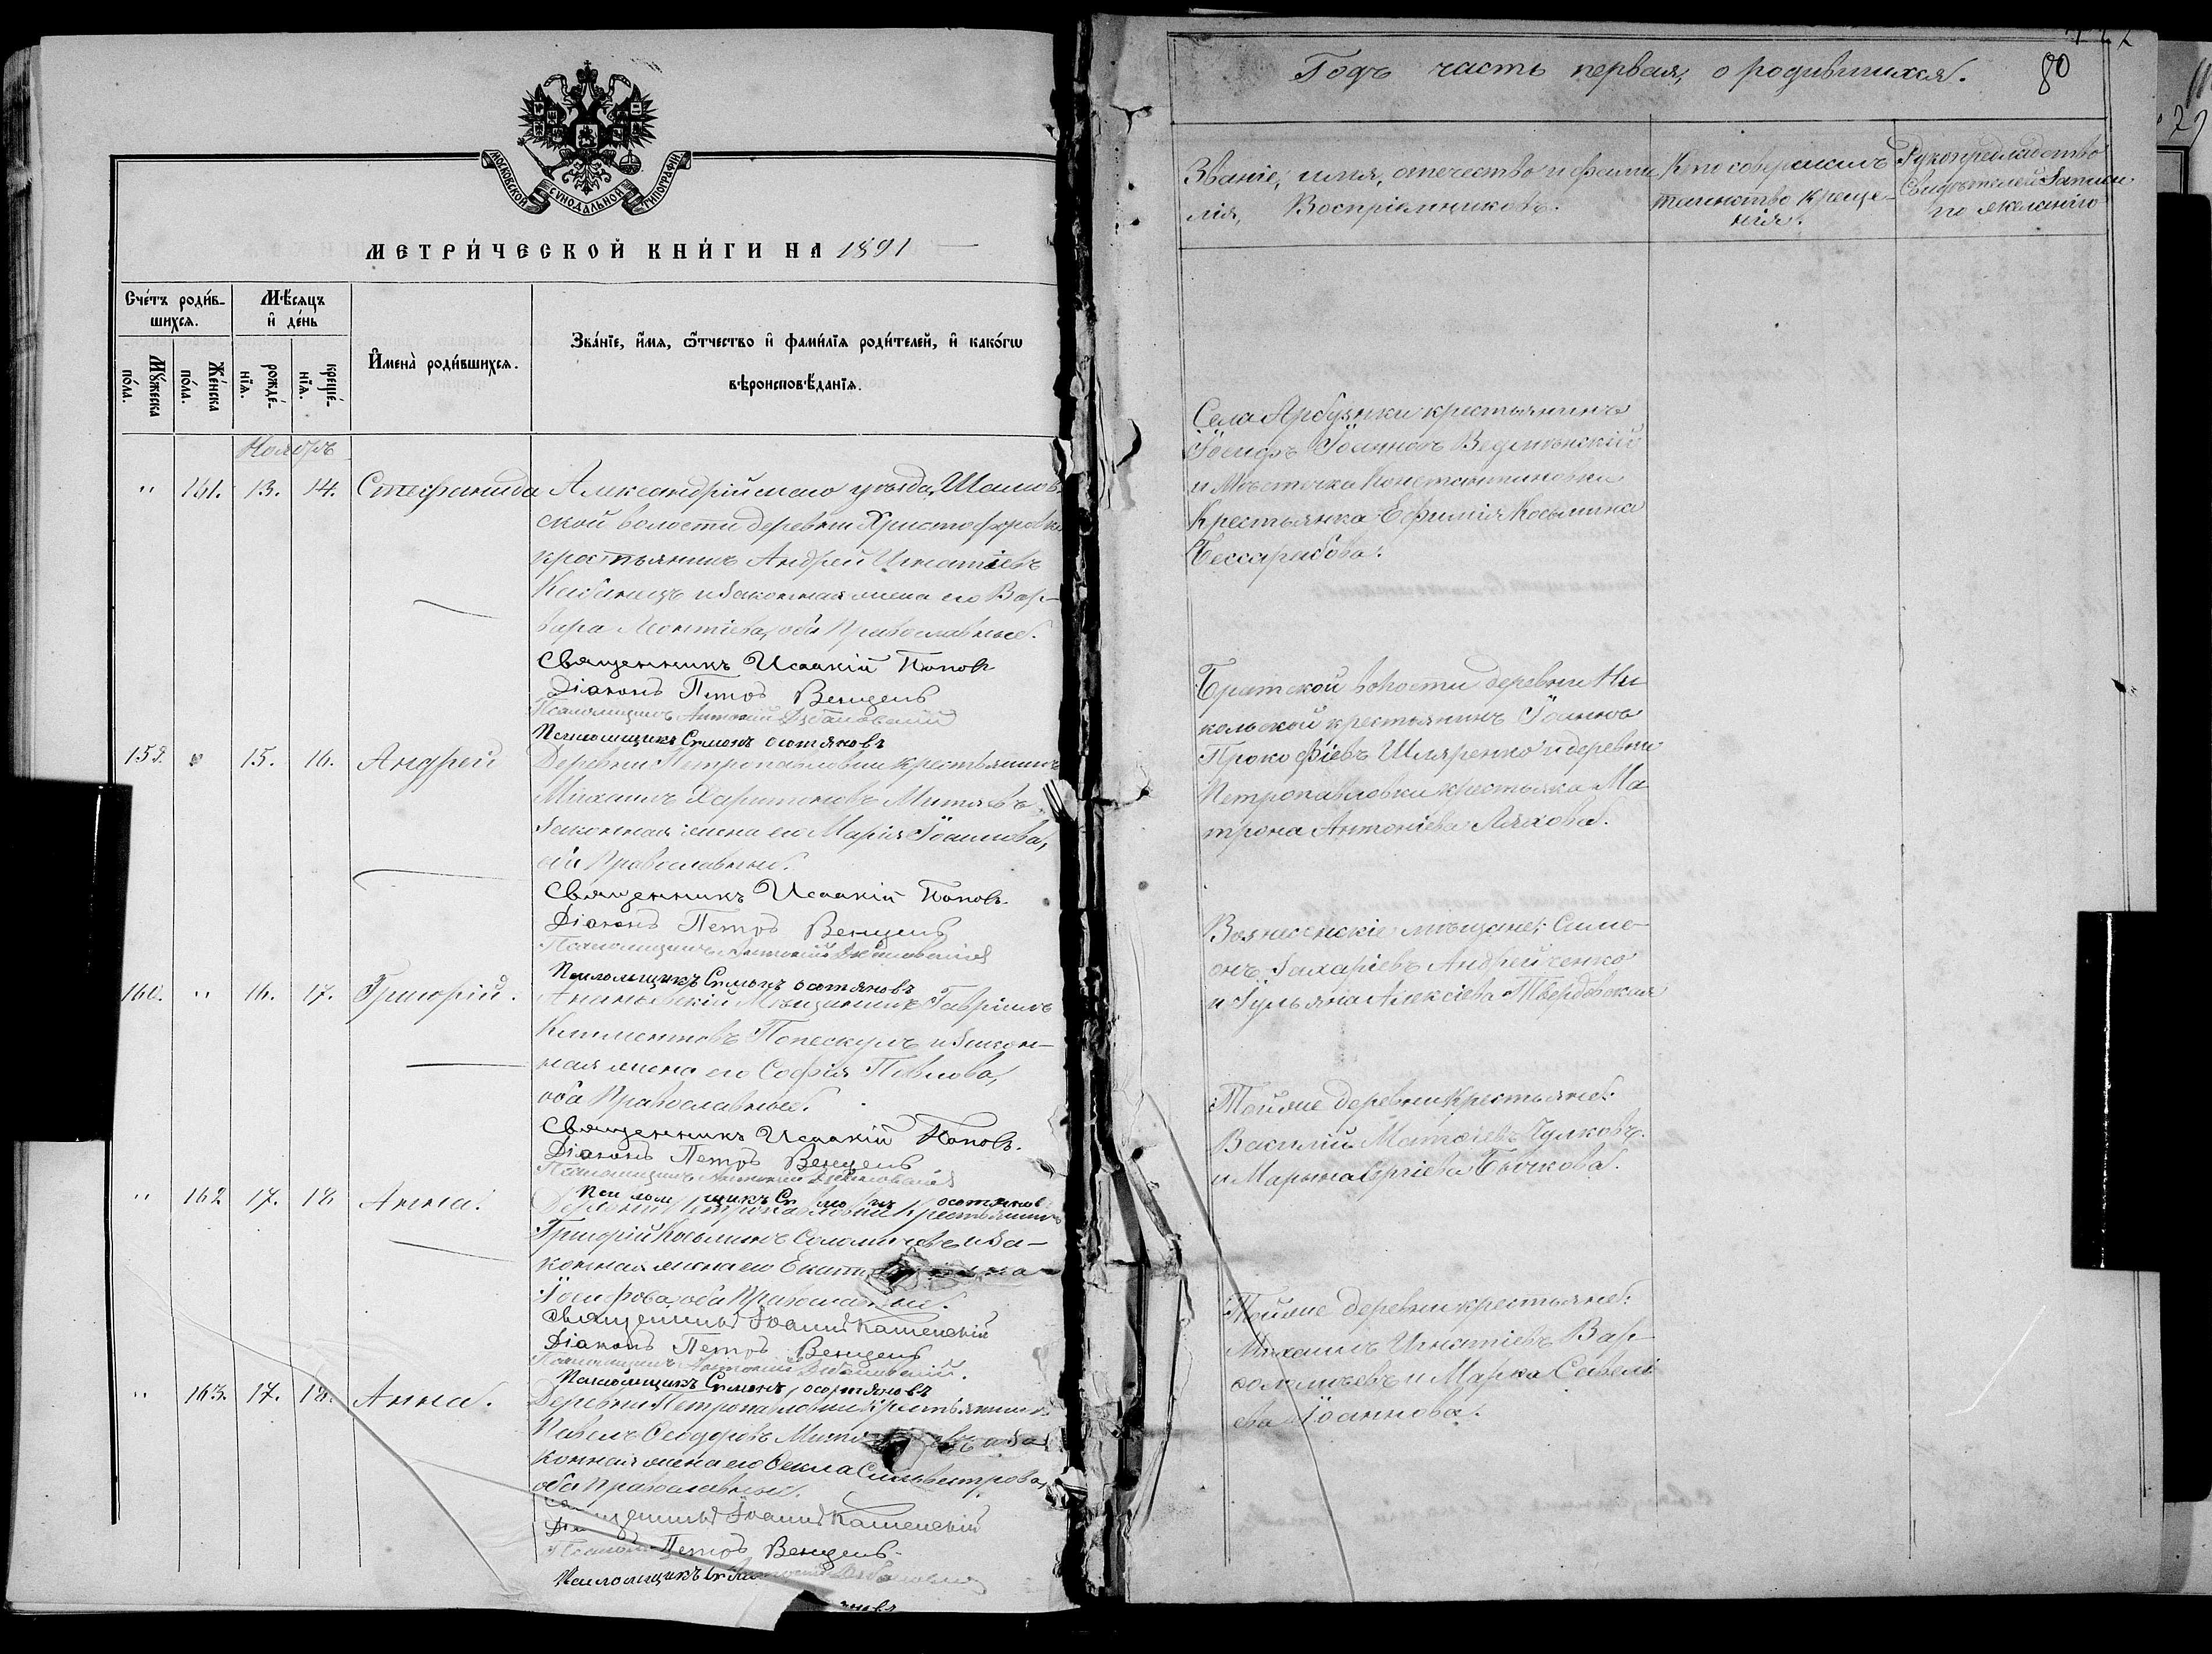 МОСКОВСКОЙ СУНОДАЛЬНОЙ ТИПОГРАФІИ
МЕТРИ́ЧЕСКОЙ КНИ́ГИ НА 1891
Сче́тъ роди́в-
шихсѧ.
Мѣ́сѧцъ
и҆ де́нь
Мꙋ́жеска
по́ла.
Же́нска
по́ла.
рожде́-
нїѧ.
креще́-
нїѧ.
И҆мена̀ роди́вшихсѧ.
Зва́нїе, и҆́мѧ, ѻ҆́тчество и҆ фами́лїѧ роди́телей, и҆ како́гѡ
вѣроисповѣ́данїѧ.
Ноябрь
" 161. 13. 14. Стефанида Александрійскаго уѣзда, Шамов-
ской волости деревни Христофоровки
крестьянинъ Андрей Игнатіевъ
и законная жена его Вар-
вара Леонтіева, оба Православные.
Священникъ Исаакій Поповъ
Діаконъ Петръ Венцель
Псаломщикъ Антоній
Псаломщикъ Симонъ Остяновъ
159. " 15. 16. Андрей Деревни Петропавловки крестьянинъ
Михаилъ Харитоновъ Митяевъ
законная жена его Марія Іоаннова,
оба Православные.
Священникъ Исаакій Поповъ.
Діаконъ Петръ Венцель
Псаломщикъ Антоній
Псаломщикъ Симонъ Остяновъ
160. " 16. 17. Григорій. Ананьевскій Мѣщанинъ Гавріилъ
Климентовъ Попескулъ и закон-
ная жена его Софія Павлова,
оба Православные.
Священникъ Исаакій Поповъ.
Діаконъ Петръ Венцель
Псаломщикъ Антоній
Псаломщикъ Симонъ Остяновъ
" 162 17. 18. Анна. Деревни Петропавловки Крестьянинъ
Григорій Косьминъ и за-
конная жена его
Іосифова, оба Православные.
Священникъ Іоаннъ Каменскій
Діаконъ Петръ Венцель
Псаломщикъ Антоній
Псаломщикъ Симонъ Остяновъ
" 163. 17. 18. Анна. Деревни Петропавловки Крестьянинъ
Павелъ Ѳеодоровъ и за-
конная жена его Ѳекла Сильвестрова,
оба Православные.
Священникъ Іоаннъ Каменскій
Петръ Венцель
Псаломщикъ
Годъ часть первая, о родившихся. 80
Званіе, имя, отечество и фами-
лія, Воспріемниковъ.
Кто совершалъ
таинство Креще-
нія.
Рукоприкладство
Свидѣтелей Записи
по желанію
Села Арбузинки крестьянинъ
Іосифъ Іоанновъ
и Мѣстечка Константиновки
Крестьянка Ефимія Косьмина
Бессарабова.
Братской волости деревни Ни-
кольской крестьянинъ Іоаннъ
Прокофіевъ Шляренко и деревни
Петропавловки крестьянка Ма-
трона Антоніева Ляхова.
Вознесенскіе мѣщане: Симе-
онъ Захаріевъ Андрейченко
и Іульяна Алексіева Твердовская
Тойже деревни крестьяне:
Василій Чулковъ.
и Марья Сергіева Бычкова.
Тойже деревни крестьяне:
Михаилъ Игнатіевъ Вар-
соломѣевъ и Марѳа Савелі-
ева Іоаннова.